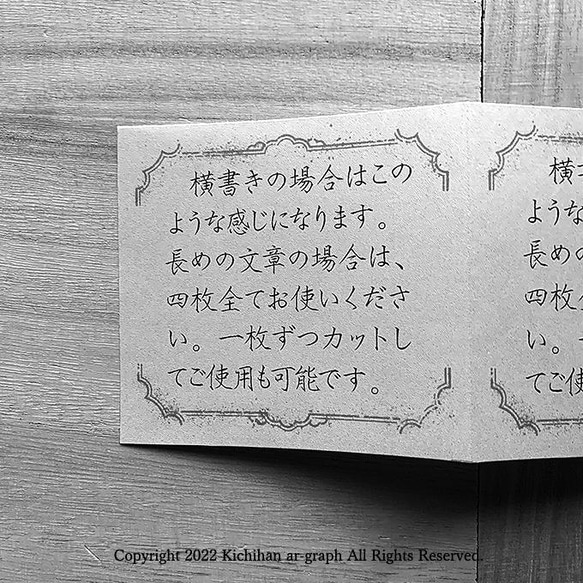 横書きの場合はこの
ような感じになります。
長めの文章の場合は、
四枚全てお使いくださ
い。一枚ずつカットし
てご使用も可能です。
横書
ような
長めの
四枚全
い。一
てご使
Copyright 2022 Kichihan ar-graph All Rights Reserved.